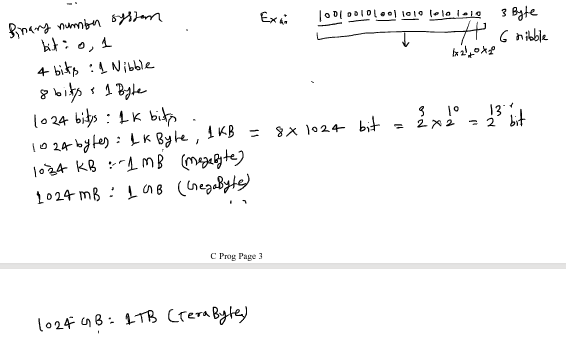 Binary number system
bit: 0, 1
4 bits : 1 Nibble
8 bits : 1 Byte
1024 bits : 1 K bits
1024 bytes : 1 K Byte, 1 KB = 8 x 1024 bit = 2^3 x 2^10 = 2^13 bit
1024 KB : 1 MB (megabyte)
1024 MB : 1 GB (GegaByte)
Ex: 1001 0010 1001 1010 1010 1010 3 Byte
6 nibble
C Prog Page 3
1024 GB : 1TB (TeraByte)